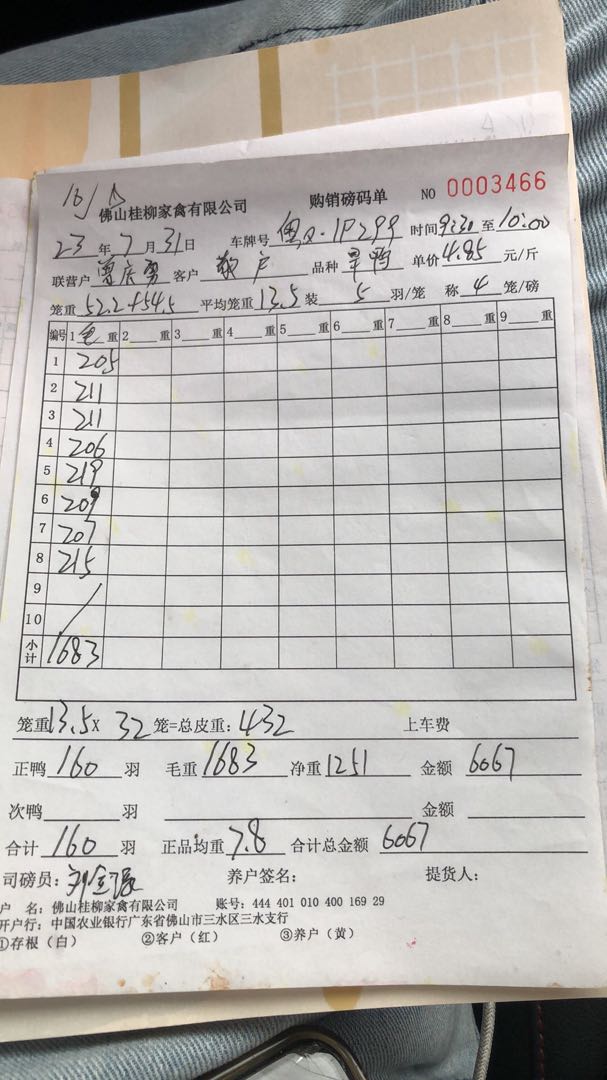 佛山桂柳家禽有限公司 购销磅码单 NO 0003466
23 年 7 月 31 日 车牌号 1P299 时间 9:30 至 10:00
联营户 客户 散户 品种 旱鸭 单价 4.85 元/斤
笼重 52.2+54.5 平均笼重 13.5 装 5 羽/笼 称 4 笼/磅
编号 1 毛 重 2 重 3 重 4 重 5 重 6 重 7 重 8 重 9 重
1 205
2 211
3 211
4 206
5 219
6 209
7 207
8 215
9
10
小计 1683
笼重 13.5 X 32 笼=总皮重: 432 上车费
正鸭 160 羽 毛重 1683 净重 1251 金额 6067
次鸭 羽 金额
合计 160 羽 正品均重 7.8 合计总金额 6067
司磅员: 养户签名: 提货人:
户 名: 佛山桂柳家禽有限公司 账号: 444 401 010 400 169 29
开户行: 中国农业银行广东省佛山市三水区三水支行
①存根（白） ②客户（红） ③养户（黄）